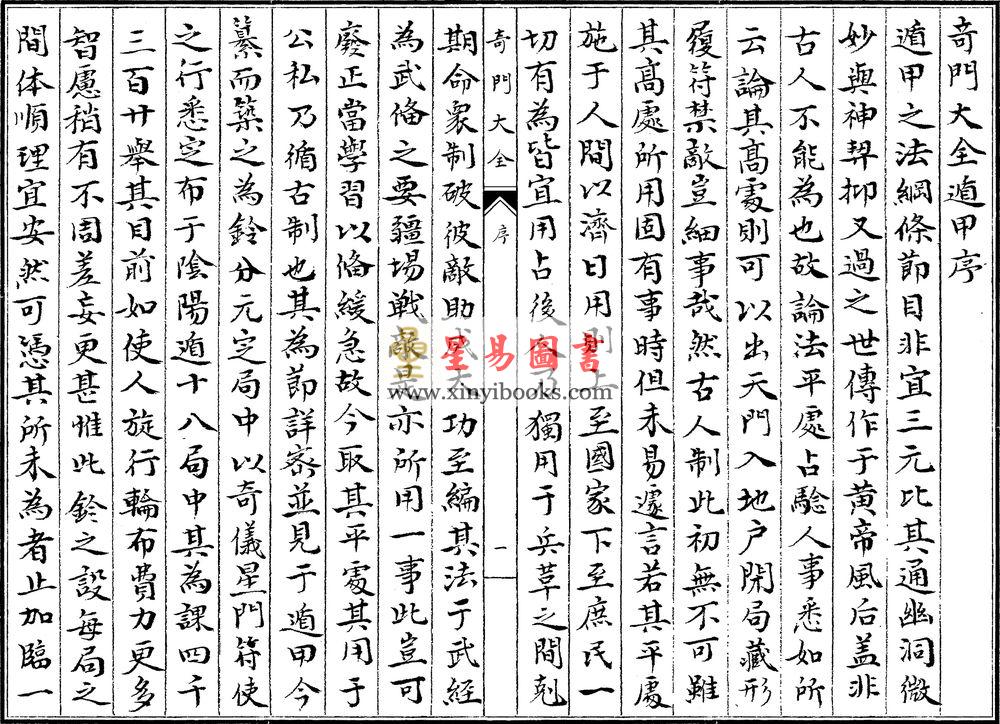 奇門大全遁甲序
遁甲之法綱條節目非宜三元比其通幽洞微
妙與神契抑又過之世傳作于黃帝風后盖非
古人不能為也故論法平處占驗人事悉如所
云論其高處則可以出天門入地户閉局藏形
履符禁敵豈細事哉然古人制此初無不可雖
其高處所用固有事時但未易遽言若其平處
施于人間以濟日用則上至國家下至庶民一
切有為皆宜用占後人乃獨用于兵革之間剋
奇門大全 序 一
期命衆制破彼敵助成天功至編其法于武經
為武俻之要疆場戰敵是亦所用一事此豈可
廢正當學習以俻緩急故今取其平處其用于
公私乃循古制也其為節詳密並見于遁甲今
纂而築之為鈐分元定局中以奇儀星門符使
之行悉定布于陰陽遁十八局中其為課四千
三百廿舉其目前如使人旋行輪布費力更多
智慮稍有不周差妄更甚惟此鈐之設每局之
間体順理宜安然可憑其所未為者止加臨一
星易圖書
www.xinyibooks.com